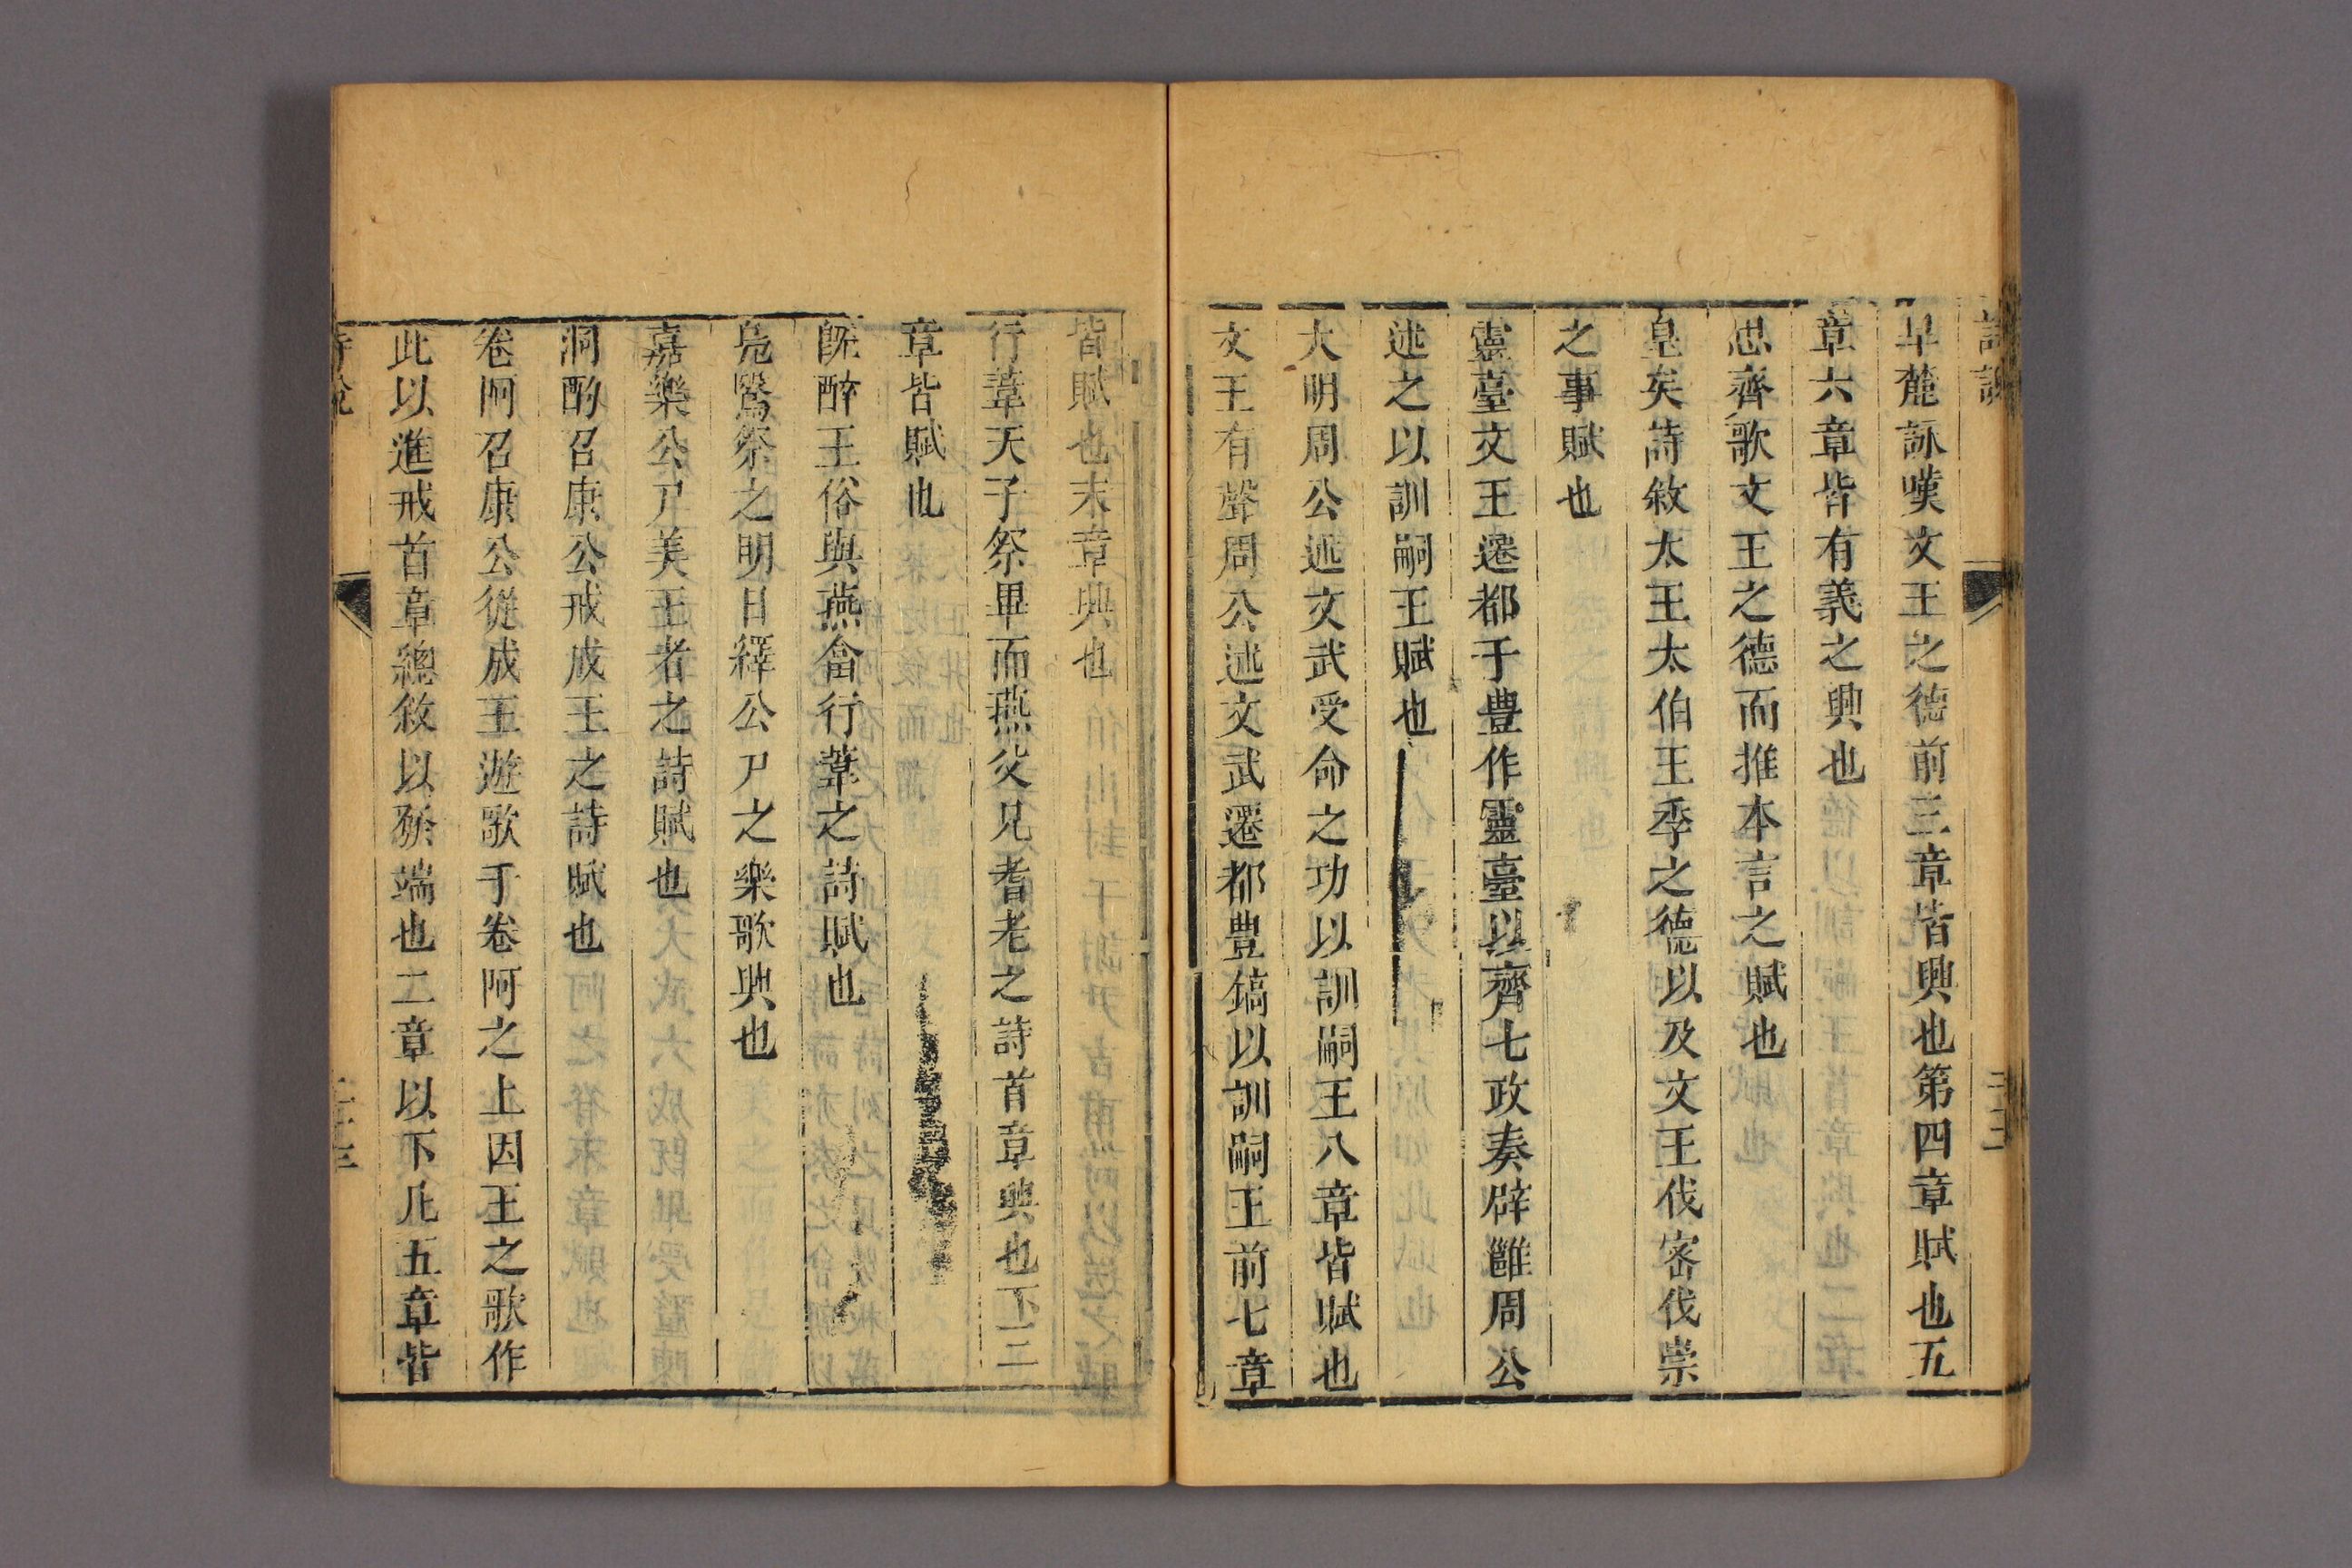 詩說
旱麓詠嘆文王之德前三章皆興也第四章賦也五
章六章皆有義之興也
思齊歌文王之德而推本言之賦也
皇矣詩敘太王太伯王季之德以及文王伐密伐崇
之事賦也
靈臺文王遷都于豊作靈臺以齊七政奏辟雝周公
述之以訓嗣王賦也
大明周公述文武受命之功以訓嗣王八章皆賦也
文王有聲周公述文武遷都豊鎬以訓嗣王前七章
皆賦也末章興也
行葦天子祭畢而燕父兄耆老之詩首章興也下三
章皆賦也
旣醉王俗與燕畣行葦之詩賦也
鳧鷖祭之明日繹公尸之樂歌興也
嘉樂公尸美王者之詩賦也
泂酌召康公戒成王之詩賦也
卷阿召康公從成王遊歌于卷阿之上因王之歌作
此以進戒首章總敘以發端也二章以下凡五章皆
詩說